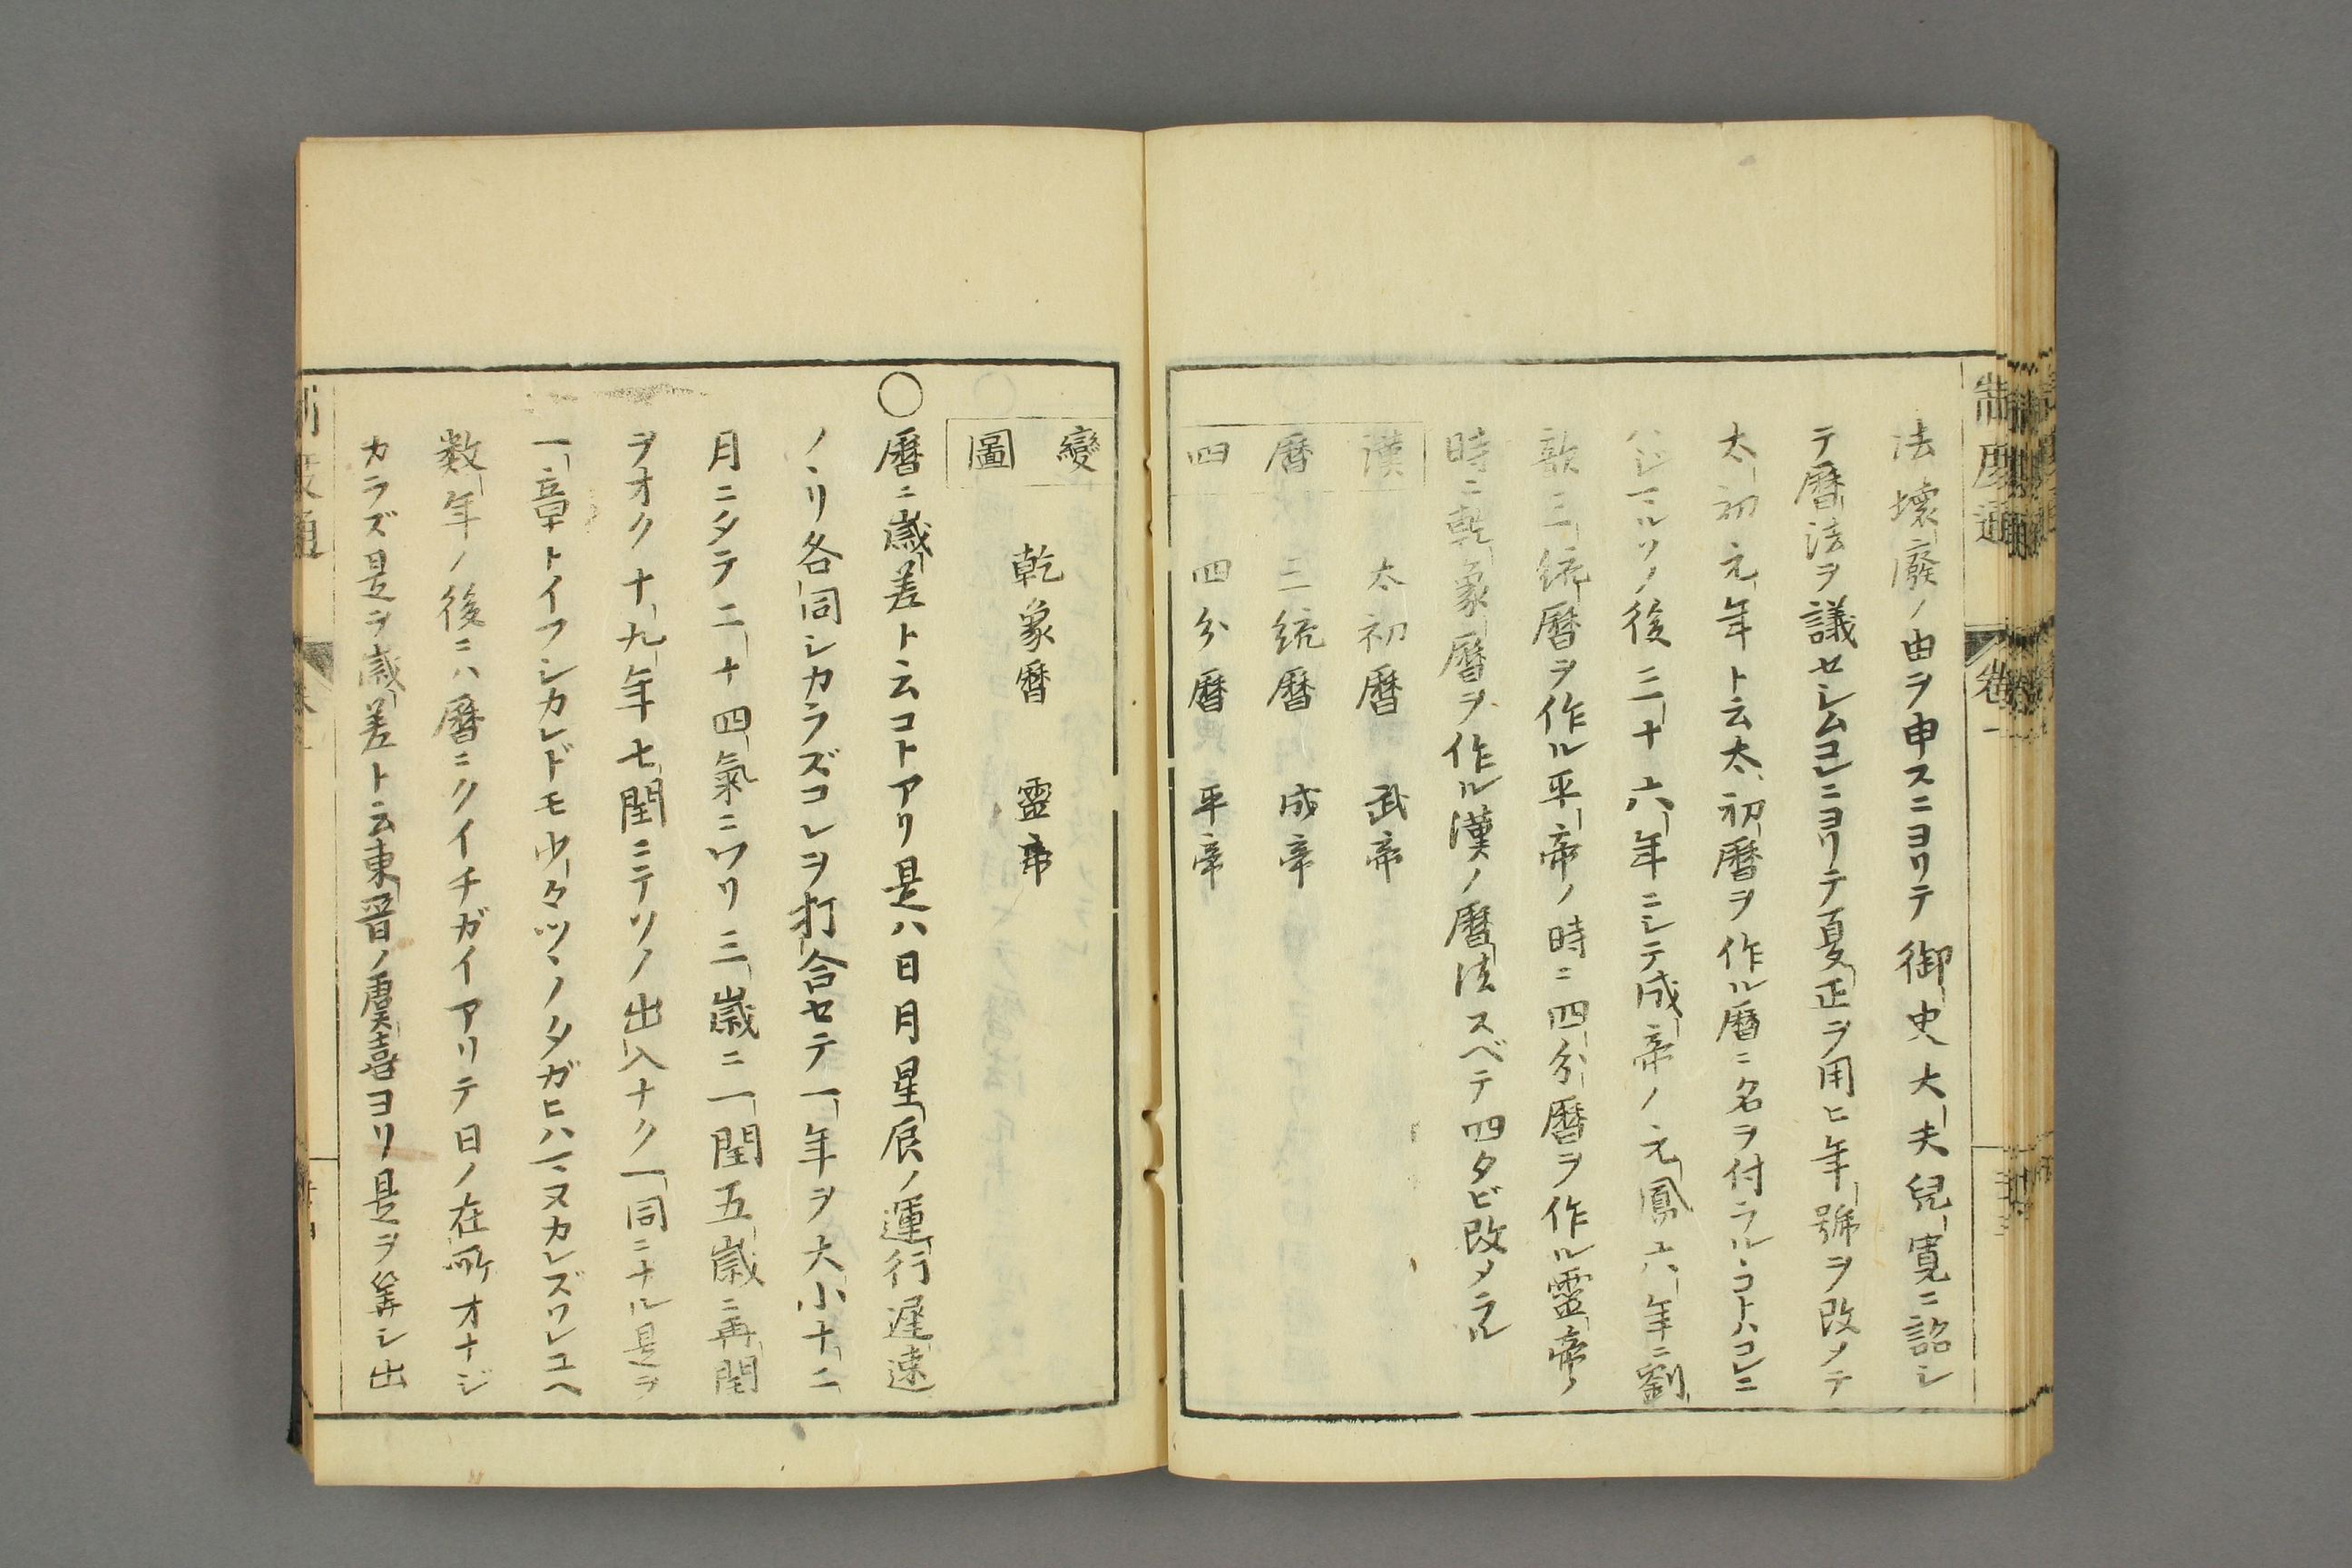 法壞廢ノ由ヲ申スニヨリテ御史大夫兒寛ニ詔シ
テ暦法ヲ議セシムコレニヨリテ夏正ヲ用ヒ年號ヲ改メテ
太初元年ト云太初暦ヲ作ル暦ニ名ヲ付ラルヽコトハコレニ
ハジマルソノ後三十六年ニシテ成帝ノ元鳳六年ニ劉
歆三統暦ヲ作ル平帝ノ時ニ四分暦ヲ作ル靈帝ノ
時ニ乾象暦ヲ作ル漢ノ暦法スベテ四タビ改メラル
漢 太初暦 武帝
暦 三統暦 成帝
四 四分暦 平帝
變
乾象暦 靈帝
圖
〇暦ニ歳差ト云コトアリ是ハ日月星辰ノ運行遲速
ノヽリ各同シカラズコレヲ打合セテ一年ヲ大小十二
月ニタテ二十四氣ニワリ三歳ニ一閏五歳ニ再閏
ヲオク十九年七閏ニテソノ出入ナク一同ニナル是ヲ
一章トイフシカレドモ少々ツヽノタガヒハマヌカレズソレユヘ
数年ノ後ニハ暦ニクイチガイアリテ日ノ在所オナジ
カラズ是ヲ歳差ト云東晉ノ虞喜ヨリ是ヲ筭シ出
制度通
卷一